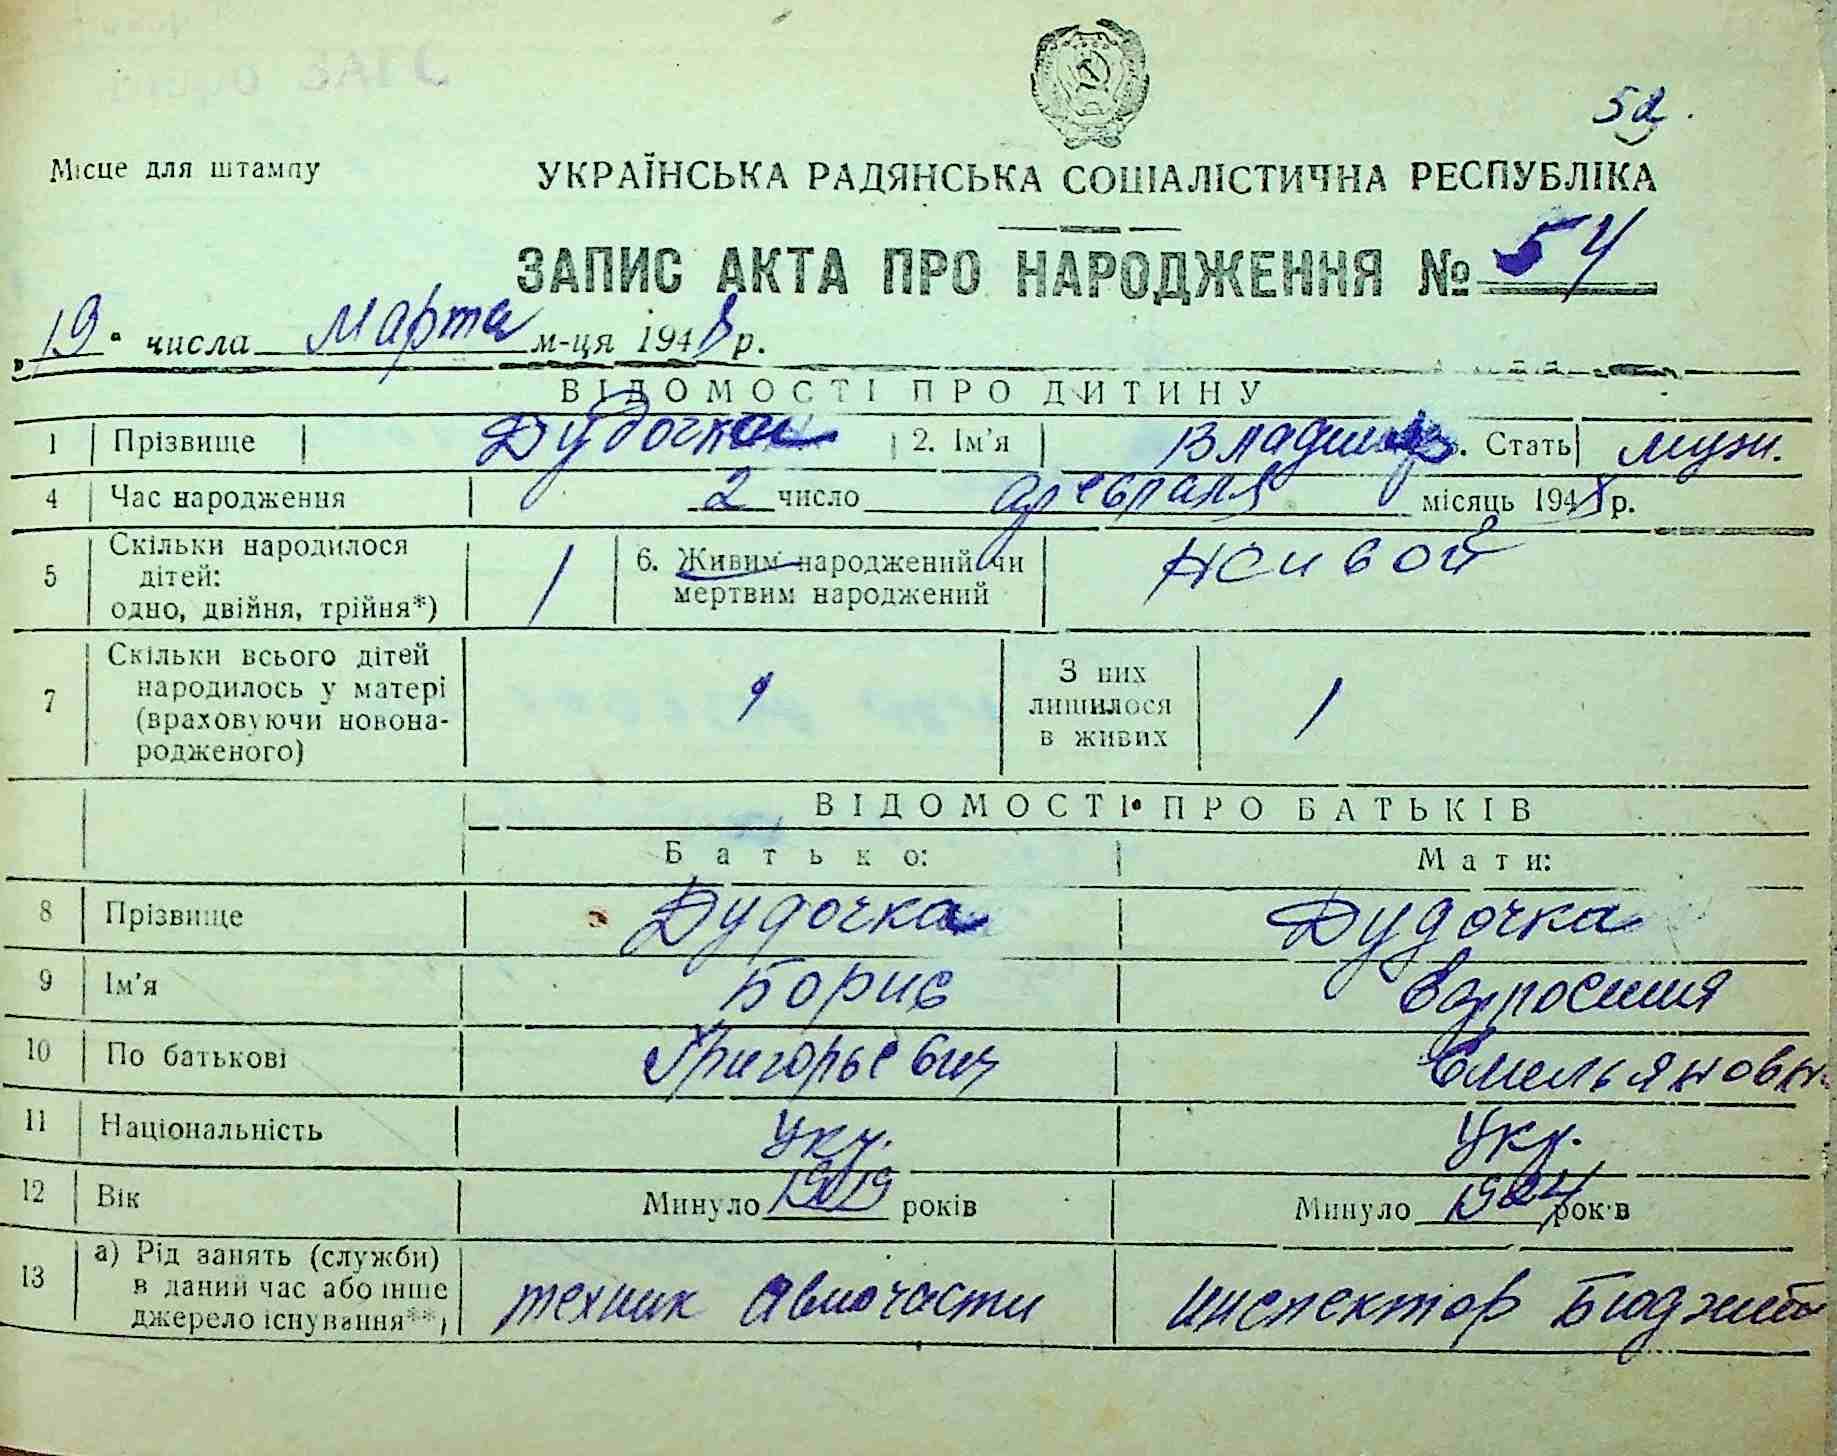 52.
Місце для штампу
УКРАЇНСЬКА РАДЯНСЬКА СОЦІАЛІСТИЧНА РЕСПУБЛІКА
ЗАПИС АКТА ПРО НАРОДЖЕННЯ № 54
„19" числа Марта м-ця 1948 р.
ВІДОМОСТІ ПРО ДИТИНУ
1 Прізвище Дудочка 2. Ім'я Владимир 3. Стать муж.
4 Час народження 2 число февраля місяць 1948 р.
5 Скільки народилося дітей: одно, двійня, трійня*) 1 6. Живим народжений чи мертвим народжений живой
7 Скільки всього дітей народилось у матері (враховуючи новонародженого) 1 З них лишилося в живих 1
ВІДОМОСТІ ПРО БАТЬКІВ
Батько: Мати:
8 Прізвище Дудочка Дудочка
9 Ім'я Борис Ефросиния
10 По батькові Григорьевич Емельяновн
11 Національність Укр. Укр.
12 Вік Минуло 1919 років Минуло 1924 років
13 а) Рід занять (служби) в даний час або інше джерело існування**) техник Авточасти инспектор